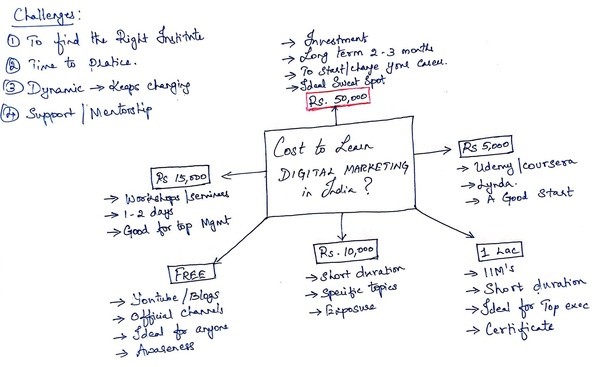 Challenges:
① To find the Right Institute
② Time to Pratice.
③ Dynamic → Keeps changing
④ Support/Mentorship
→ Investment
→ Long term 2-3 months
→ To Start/change your career.
→ Ideal Sweet Spot
Rs. 50,000
Cost to Learn
DIGITAL MARKETING
in India?
Rs 5,000
→ Udemy/coursera
→ Lynda.
→ A Good Start
Rs 15,000
→ Workshops/seminars
→ 1-2 days
→ Good for top Mgmt
FREE
→ Youtube/Blogs
→ Official channels
→ Ideal for anyone
→ Awareness
Rs. 10,000
→ Short duration
→ Specific topics
→ Exposure
1 Lac
→ IIM's
→ Short duration
→ Ideal for Top exec
→ Certificate